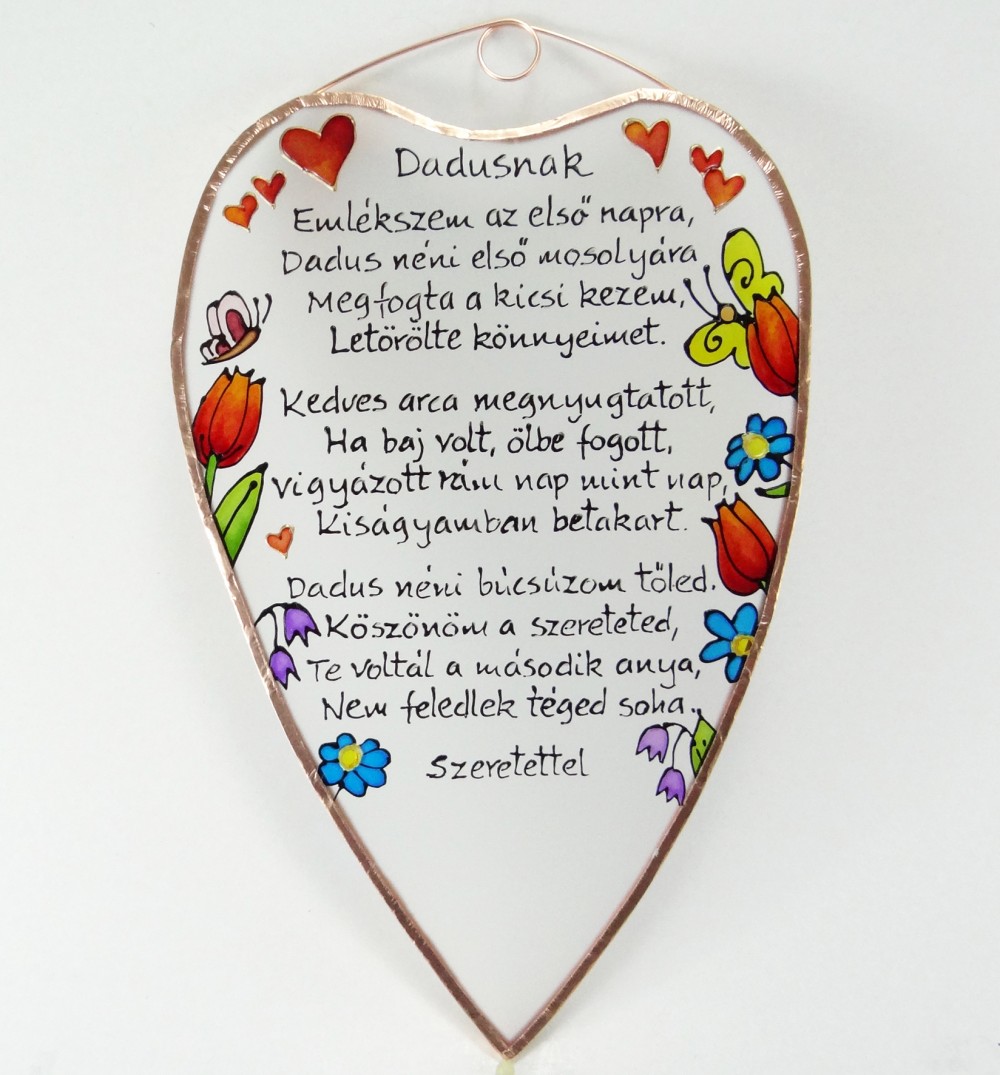 Dadusnak
Emlékszem az első napra,
Dadus néni első mosolyára
Megfogta a kicsi kezem,
Letörölte könnyeimet.
Kedves arca megnyugtatott,
Ha baj volt, ölbe fogott,
vigyázott rám nap mint nap,
Kiságyamban betakart.
Dadus néni búcsúzom tőled.
Köszönöm a szereteted,
Te voltál a második anya,
Nem feledlek téged soha.
Szeretettel